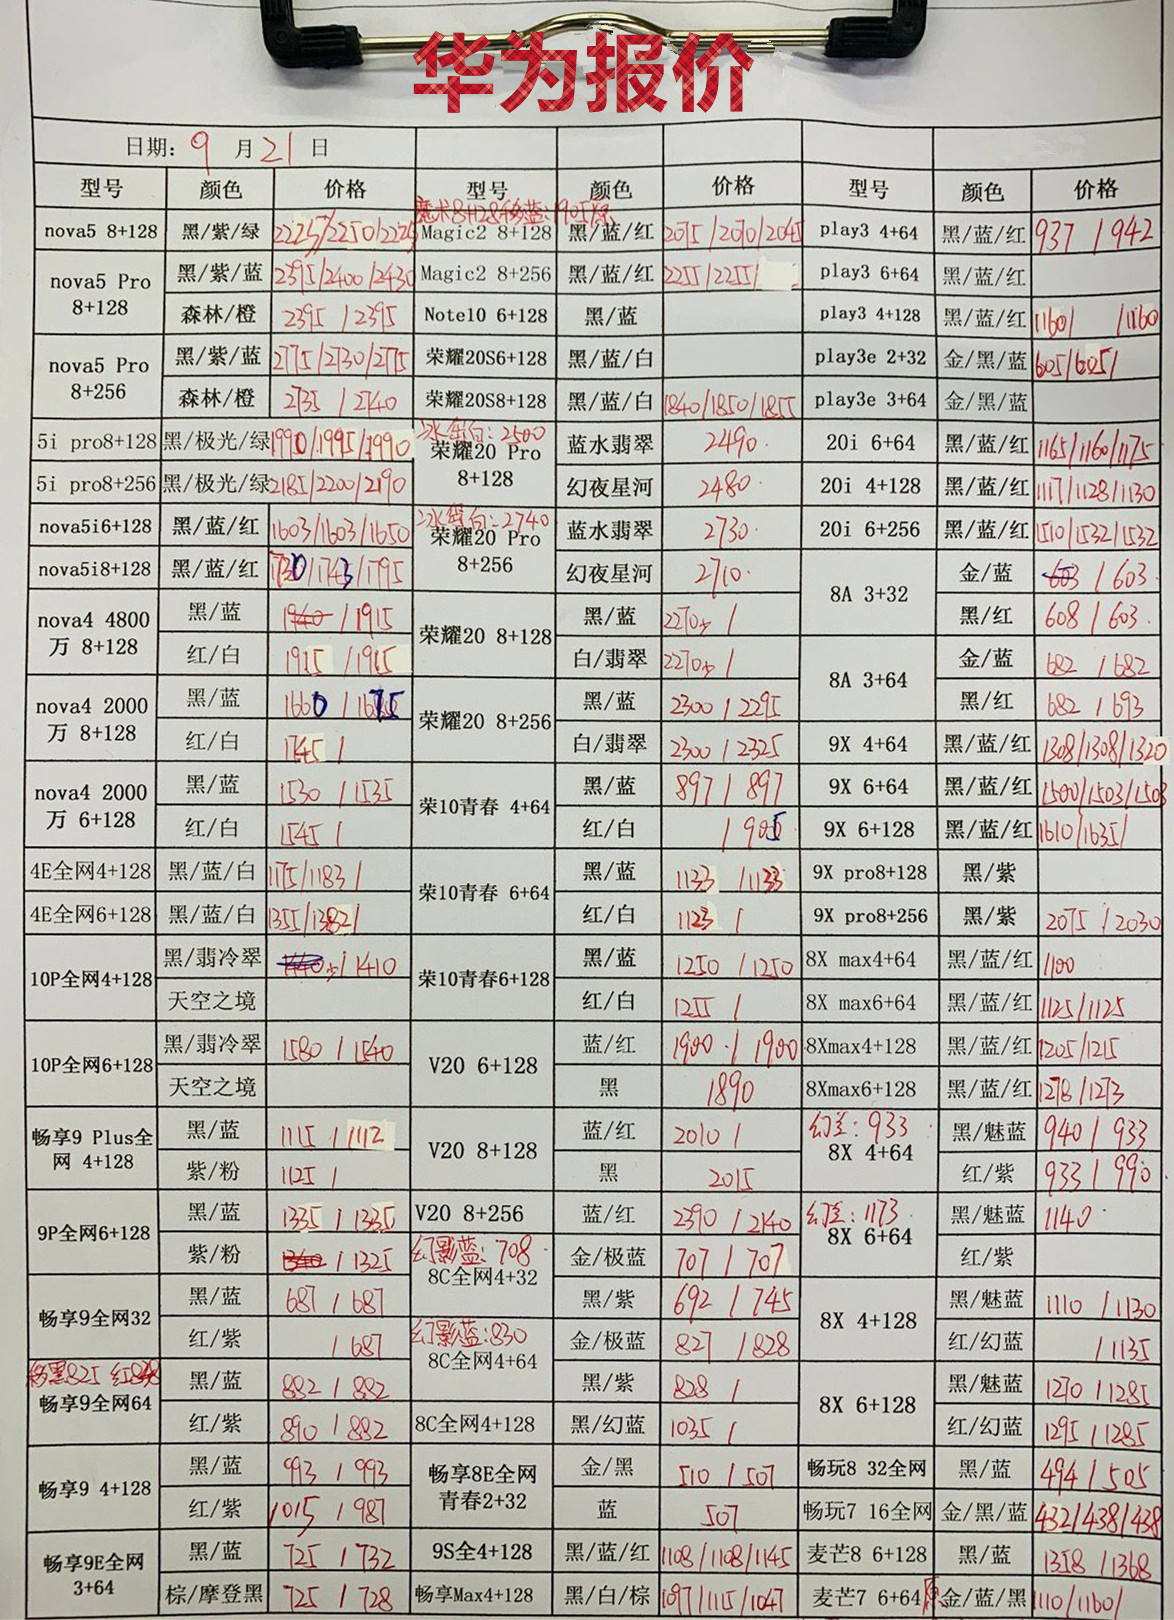 华为报价
日期: 9 月 21 日
型号 颜色 价格 型号 颜色 价格 型号 颜色 价格
nova5 8+128 黑/紫/绿 2225/2250/2225 Magic2 8+128 黑/蓝/红 2075/2070/2045 play3 4+64 黑/蓝/红 937/942
nova5 Pro 8+128 黑/紫/蓝 2395/2400/2430 Magic2 8+256 黑/蓝/红 2255/2255/ play3 6+64 黑/蓝/红
森林/橙 2395/2395 Note10 6+128 黑/蓝 play3 4+128 黑/蓝/红 1160/ /1160
nova5 Pro 8+256 黑/紫/蓝 2775/2730/2775 荣耀20S6+128 黑/蓝/白 play3e 2+32 金/黑/蓝 605/605/
森林/橙 2735/2740 荣耀20S8+128 黑/蓝/白 1840/1850/1855 play3e 3+64 金/黑/蓝
5i pro8+128 黑/极光/绿 1990/1995/1990 冰岛白: 2500 荣耀20 Pro 8+128 蓝水翡翠 2490 20i 6+64 黑/蓝/红 1165/1160/1175
5i pro8+256 黑/极光/绿 2185/2200/2190 幻夜星河 2480 20i 4+128 黑/蓝/红 1117/1128/1130
nova5i6+128 黑/蓝/红 1603/1603/1650 冰岛白: 2740 荣耀20 Pro 8+256 蓝水翡翠 2730 20i 6+256 黑/蓝/红 1510/1532/1532
nova5i8+128 黑/蓝/红 1730/1743/1795 幻夜星河 2710 8A 3+32 金/蓝 603/603
nova4 4800万 8+128 黑/蓝 1940/1915 荣耀20 8+128 黑/蓝 2270少/ 黑/红 608/603
红/白 1915/1915 白/翡翠 2270少/ 8A 3+64 金/蓝 682/682
nova4 2000万 8+128 黑/蓝 1660/1675 荣耀20 8+256 黑/蓝 2300/2295 黑/红 682/693
红/白 1745/ 白/翡翠 2300/2325 9X 4+64 黑/蓝/红 1308/1308/1320
nova4 2000万 6+128 黑/蓝 1530/1535 荣10青春 4+64 黑/蓝 897/897 9X 6+64 黑/蓝/红 1500/1503/1508
红/白 1545/ 红/白 /905 9X 6+128 黑/蓝/红 1610/1635/
4E全网4+128 黑/蓝/白 1175/1183/ 荣10青春 6+64 黑/蓝 1133/1133 9X pro8+128 黑/紫
4E全网6+128 黑/蓝/白 1355/1382/ 红/白 1123/ 9X pro8+256 黑/紫 2075/2030
10P全网4+128 黑/翡冷翠 1440少/1410 荣10青春6+128 黑/蓝 1250/1250 8X max4+64 黑/蓝/红 1100
天空之境 红/白 1255/ 8X max6+64 黑/蓝/红 1125/1125
10P全网6+128 黑/翡冷翠 1580/1540 V20 6+128 蓝/红 1900/1900 8Xmax4+128 黑/蓝/红 1205/1215
天空之境 黑 1890 8Xmax6+128 黑/蓝/红 1278/1273
畅享9 Plus全网 4+128 黑/蓝 1115/1112 V20 8+128 蓝/红 2010/ 8X 4+64 黑/魅蓝 940/933
紫/粉 1125/ 黑 2015 红/紫 933/990
9P全网6+128 黑/蓝 1335/1335 V20 8+256 蓝/红 2390/2140 8X 6+64 黑/魅蓝 1140
紫/粉 1340/1325 幻影蓝: 708 8C全网4+32 金/极蓝 707/707 红/紫
畅享9全网32 黑/蓝 687/687 黑/紫 692/745 8X 4+128 黑/魅蓝 1110/1130
红/紫 /687 幻影蓝:830 8C全网4+64 金/极蓝 827/828 红/幻蓝 /1135
畅享9全网64 黑/蓝 882/882 黑/紫 828/ 8X 6+128 黑/魅蓝 1270/1285
红/紫 890/882 8C全网4+128 黑/幻蓝 1035/ 红/幻蓝 1295/1285
畅享9 4+128 黑/蓝 993/993 畅享8E全网青春2+32 金/黑 510/507 畅玩8 32全网 黑/蓝 494/505
红/紫 1015/987 蓝 507 畅玩7 16全网 金/黑/蓝 432/438/438
畅享9E全网 3+64 黑/蓝 725/732 9S全4+128 黑/蓝/红 1108/1108/1145 麦芒8 6+128 黑/蓝 1358/1368
棕/摩登黑 725/728 畅享Max4+128 黑/白/棕 1097/1115/1047 麦芒7 6+64 金/蓝/黑 1110/1160/